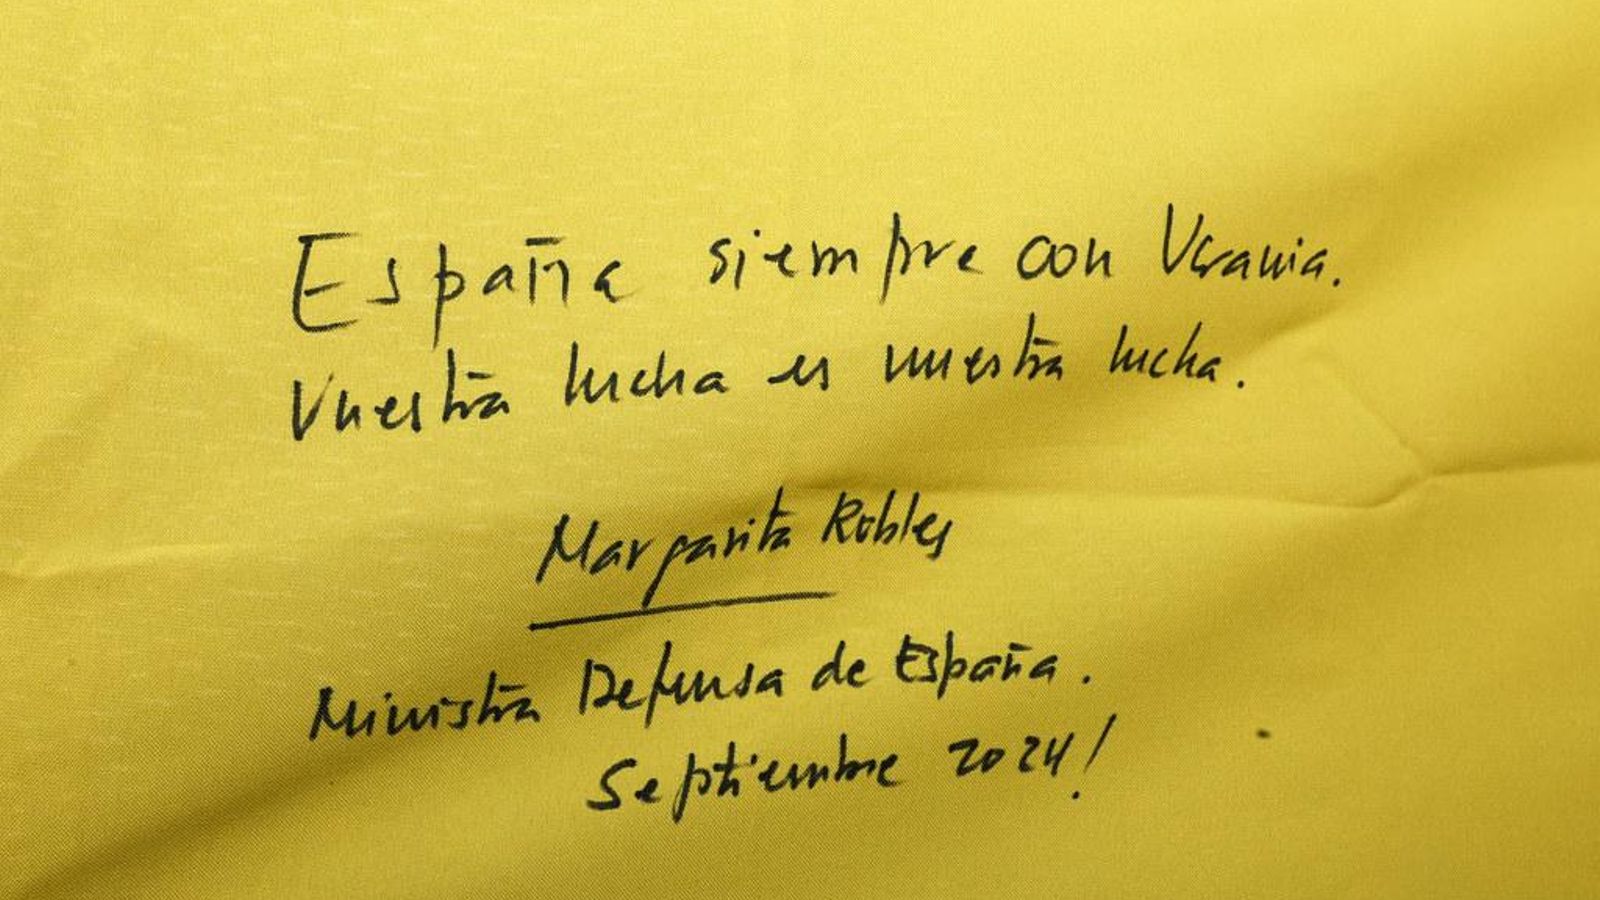 España siempre con Ucrania.
Vuestra lucha es nuestra lucha.
Margarita Robles
Ministra Defensa de España.
Septiembre 2024!